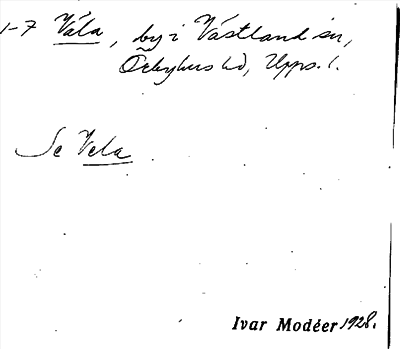 1-7 Våla, by i Västland sn,
Örbyhus hd, Upps. l.
Se Vela
Ivar Modéer 1928.